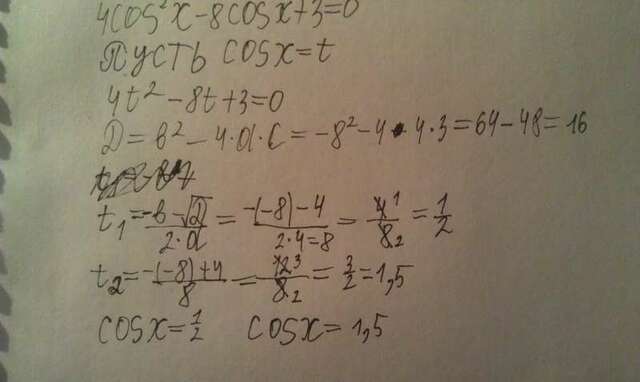 4cos²x-8cosx+3=0
Пусть cosx=t
4t²-8t+3=0
D=b²-4·a·c=-8²-4·4·3=64-48=16
t₁=(-b-√D)/(2·a)=(-(-8)-4)/(2·4=8)=4¹/8₂=1/2
t₂=(-(-8)+4)/8=12³/8₂=3/2=1,5
cosx=1/2 cosx=1,5